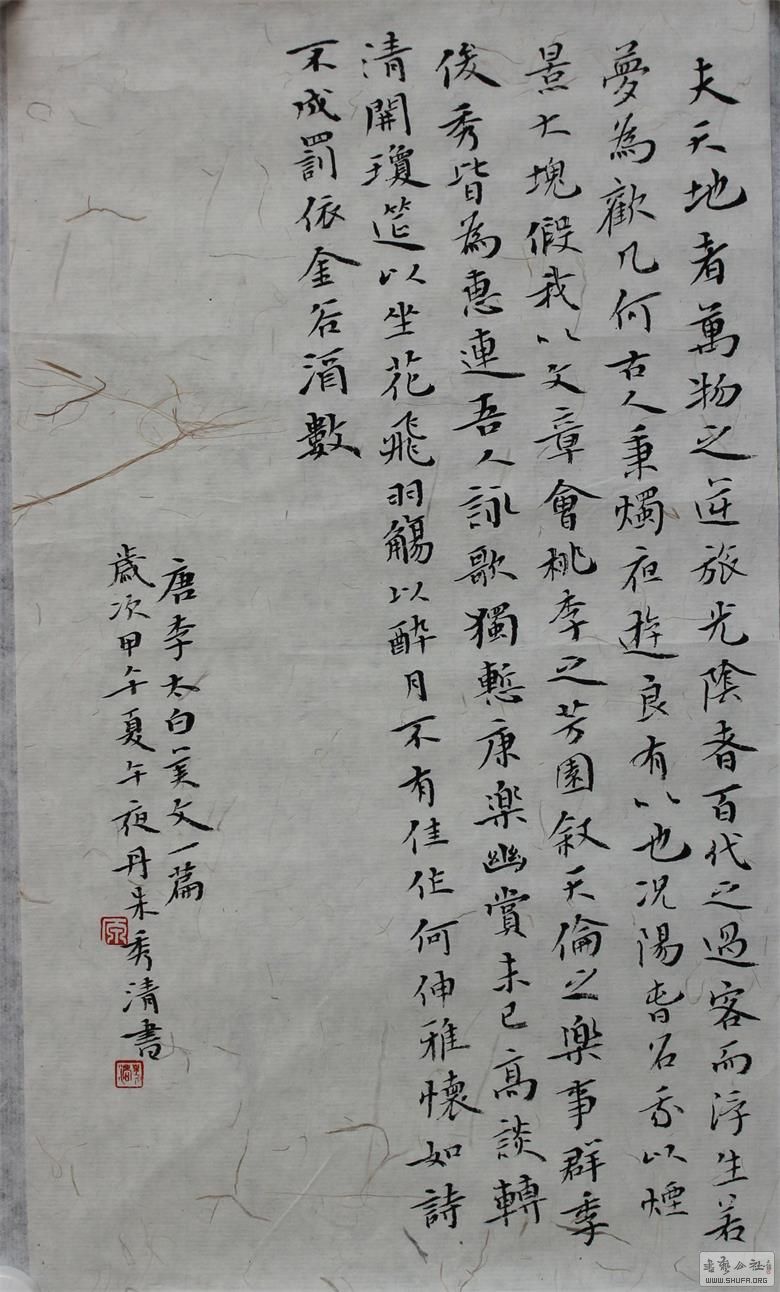 夫天地者萬物之逆旅光陰者百代之過客而浮生若
夢為歡几何古人秉燭夜遊良有以也況陽春召我以煙
景大塊假我以文章會桃李之芳園敘天倫之樂事群季
俊秀皆為惠連吾人詠歌獨慙康樂幽賞未已高談轉
清開瓊筵以坐花飛羽觴以醉月不有佳作何伸雅懷如詩
不成罰依金谷酒數
唐李太白美文一篇
歲次甲午夏午夜丹朱秀清書
WWW.SHUFA.ORG